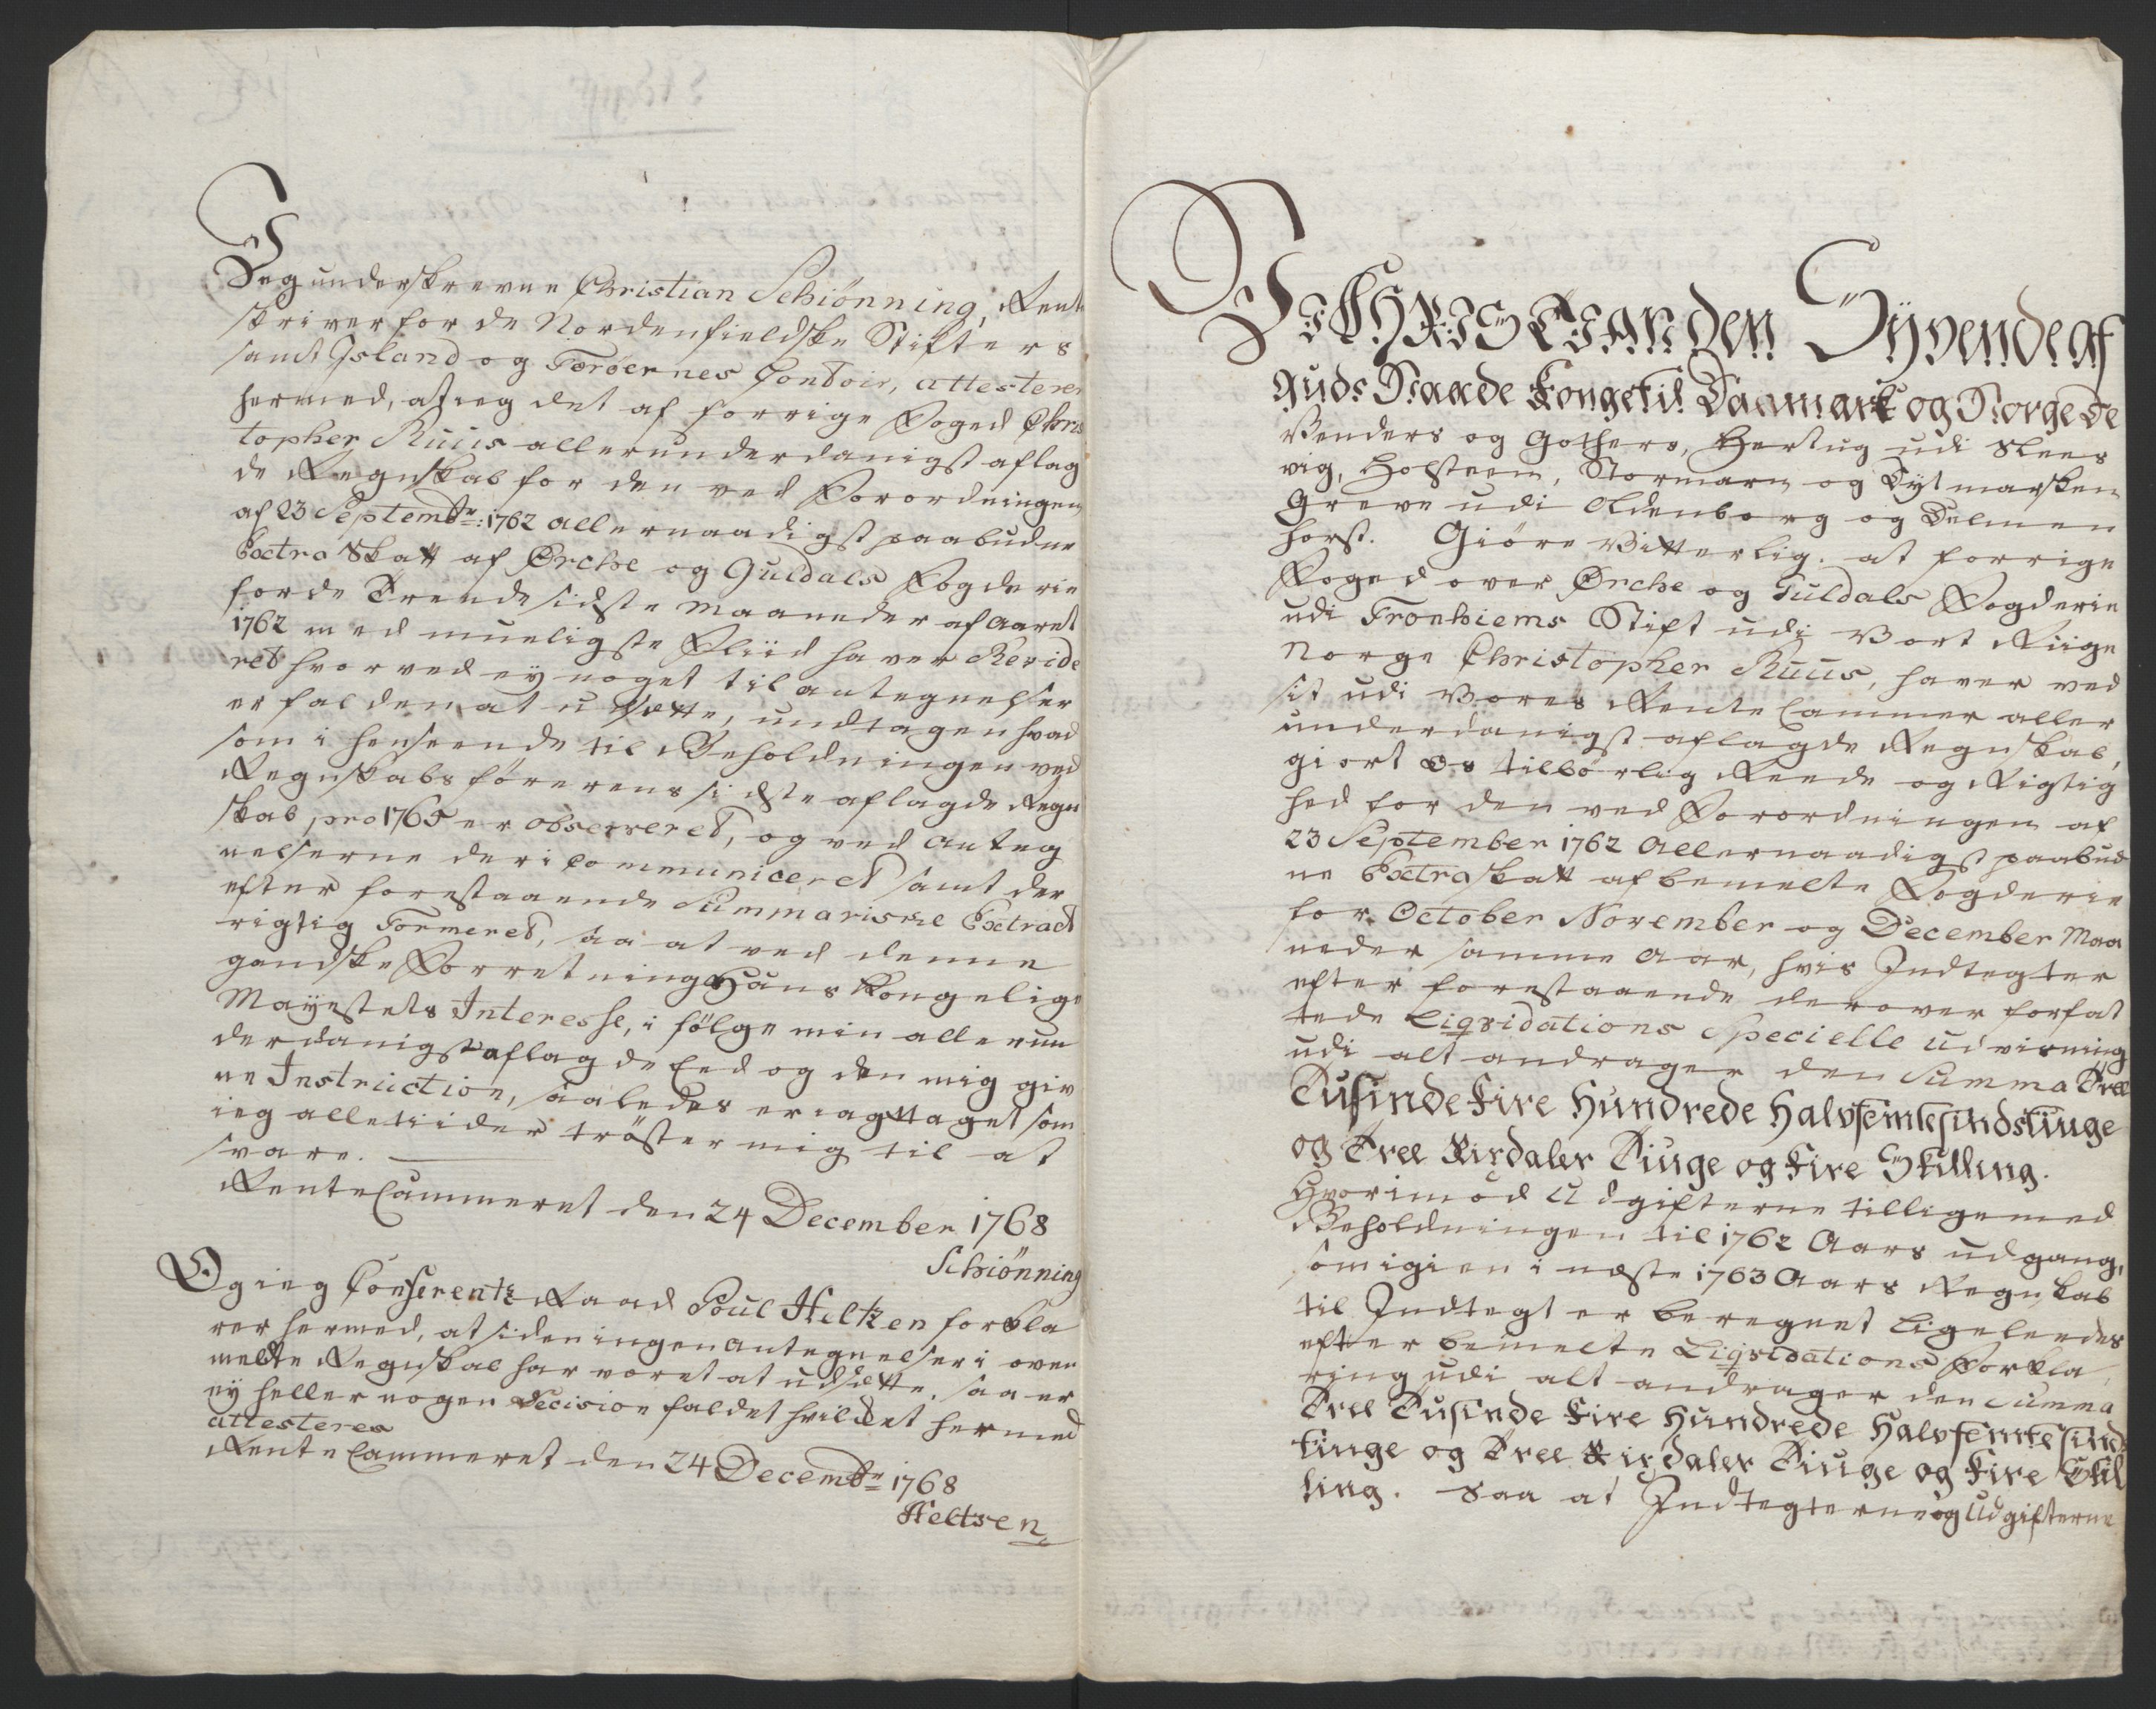 Jeg underskrevne Christian Schiönning, Rente
skriver for de Nordenfieldske Stifters
samt Jsland og Færöernes Contoir, attesterer
hermed, at jeg det af forrige Foged Chris
topher Ruus allerunderdanigst aflag
de Regnskab for den ved Forordningen
af 23 Septembr: 1762 allernaadigst paabudne
Extra Skatt af Örche og Guldals Fogderie
for de Trende sidste Maaneder af Aaret
1762 med mueligste Fliid haver Revide
ret hvorved ey noget til antegnelser
er falden at udsætte, undtagen hvad
som i henseende til Beholdningen ved
Regnskabsförerens sidste aflagde Regn
skab pro 1765 er observeret, og ved Anteg
nelserne deri communiceret samt der
efter forestaaende Summariske Extract
rigtig Formeret, saa at ved denne
gandske Forretning Hans Kongelige
Mayestets Interesse, i fölge min allerun
derdanigst aflagde Eed og den mig giv
ne Instruction, saaledes er iagttaget som
ieg alletiider tröster mig til at
svare.
RenteCammeret den 24 December 1768
Schiönning
Og ieg Conferentz Raad Poul Heltzen forkla
rer hermed, at siden ingen Antegnelser i oven
melte Regnskab har været at udsætte, saa er
ey heller nogen Decision faldet hvilket hermed
attesteres
RenteCammeret den 24 Decembr 1768
Heltzen
Vi CHRISTIAN den Syvende af
Guds Naade Konge til Danmark og Norge De
Venders og Gothers, Hertug udi Slees
vig, Holsteen, Stormarn og Dytmarsken
Greve udi Oldenborg og Delmen
horst. Giöre Vitterlig. at forrige
Foged over Örche og Guldals Fogderie
udi Tronhiems Stift udi Vort Riige
Norge Christopher Ruus, haver ved
sit udi Vores Rente Cammer aller
underdanigst aflagde Regnskab,
giort Os tilbörlig Reede og Rigtig
hed for den ved Forordningen af
23 September 1762 Allernaadigst paabud
ne Extraskatt af bemelte Fogderie
for October November og December Maa
neder samme Aar, hvis Indtegter
efter forestaaende derover forfat
tede Liqvidations Specielle Udvisning
udi alt andrager den Summa Tree
Tusinde Fire Hundrede Halvfemtesindstiuge
og Tree Rixdaler Tiuge og Fire Skilling.
Hvorimod Udgifterne tilligemed
Beholdningen til 1762 Aars udgang,
som igien i næste 1763 Aars Regnskab
til Indtegt er beregnet Ligeleedes
efter bemelte Liqvidations Forkla
ring udi alt andrager den Summa
Tree Tusinde Fire Hundrede Halvfemtesinds
tiuge og Tree Rixdaler Tiuge og Fire Skil
ling. Saa at Indtegterne og Udgifterne